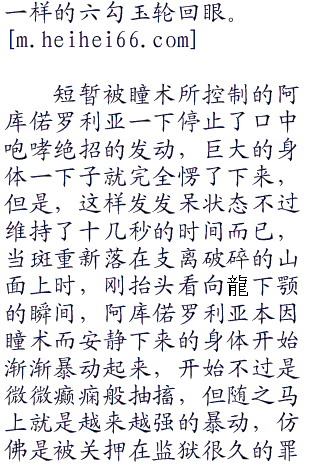 一样的六勾玉轮回眼。
[m.heihei66.com]
短暂被瞳术所控制的阿
库偌罗利亚一下停止了口中
咆哮绝招的发动，巨大的身
体一下子就完全愣了下来，
但是，这样发发呆状态不过
维持了十几秒的时间而已，
当斑重新落在支离破碎的山
面上时，刚抬头看向龍下颚
的瞬间，阿库偌罗利亚本因
瞳术而安静下来的身体开始
渐渐暴动起来，开始不过是
微微癫痫般抽搐，但随之马
上就是越来越强的暴动，仿
佛是被关押在监狱很久的罪